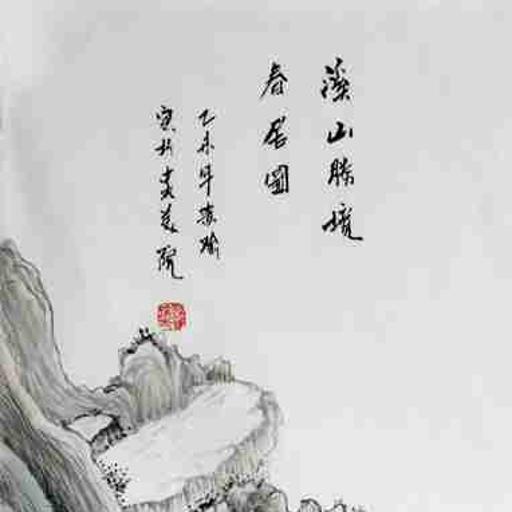 溪山勝境
春居圖
乙未年秦瑜
寫於史美院